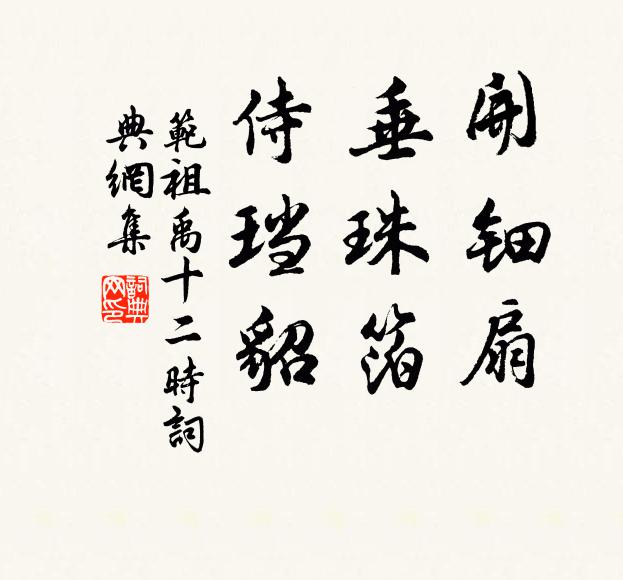 開钿扇
垂珠箔
侍珰貂
範祖禹十二時詞
典網集
詞典网印